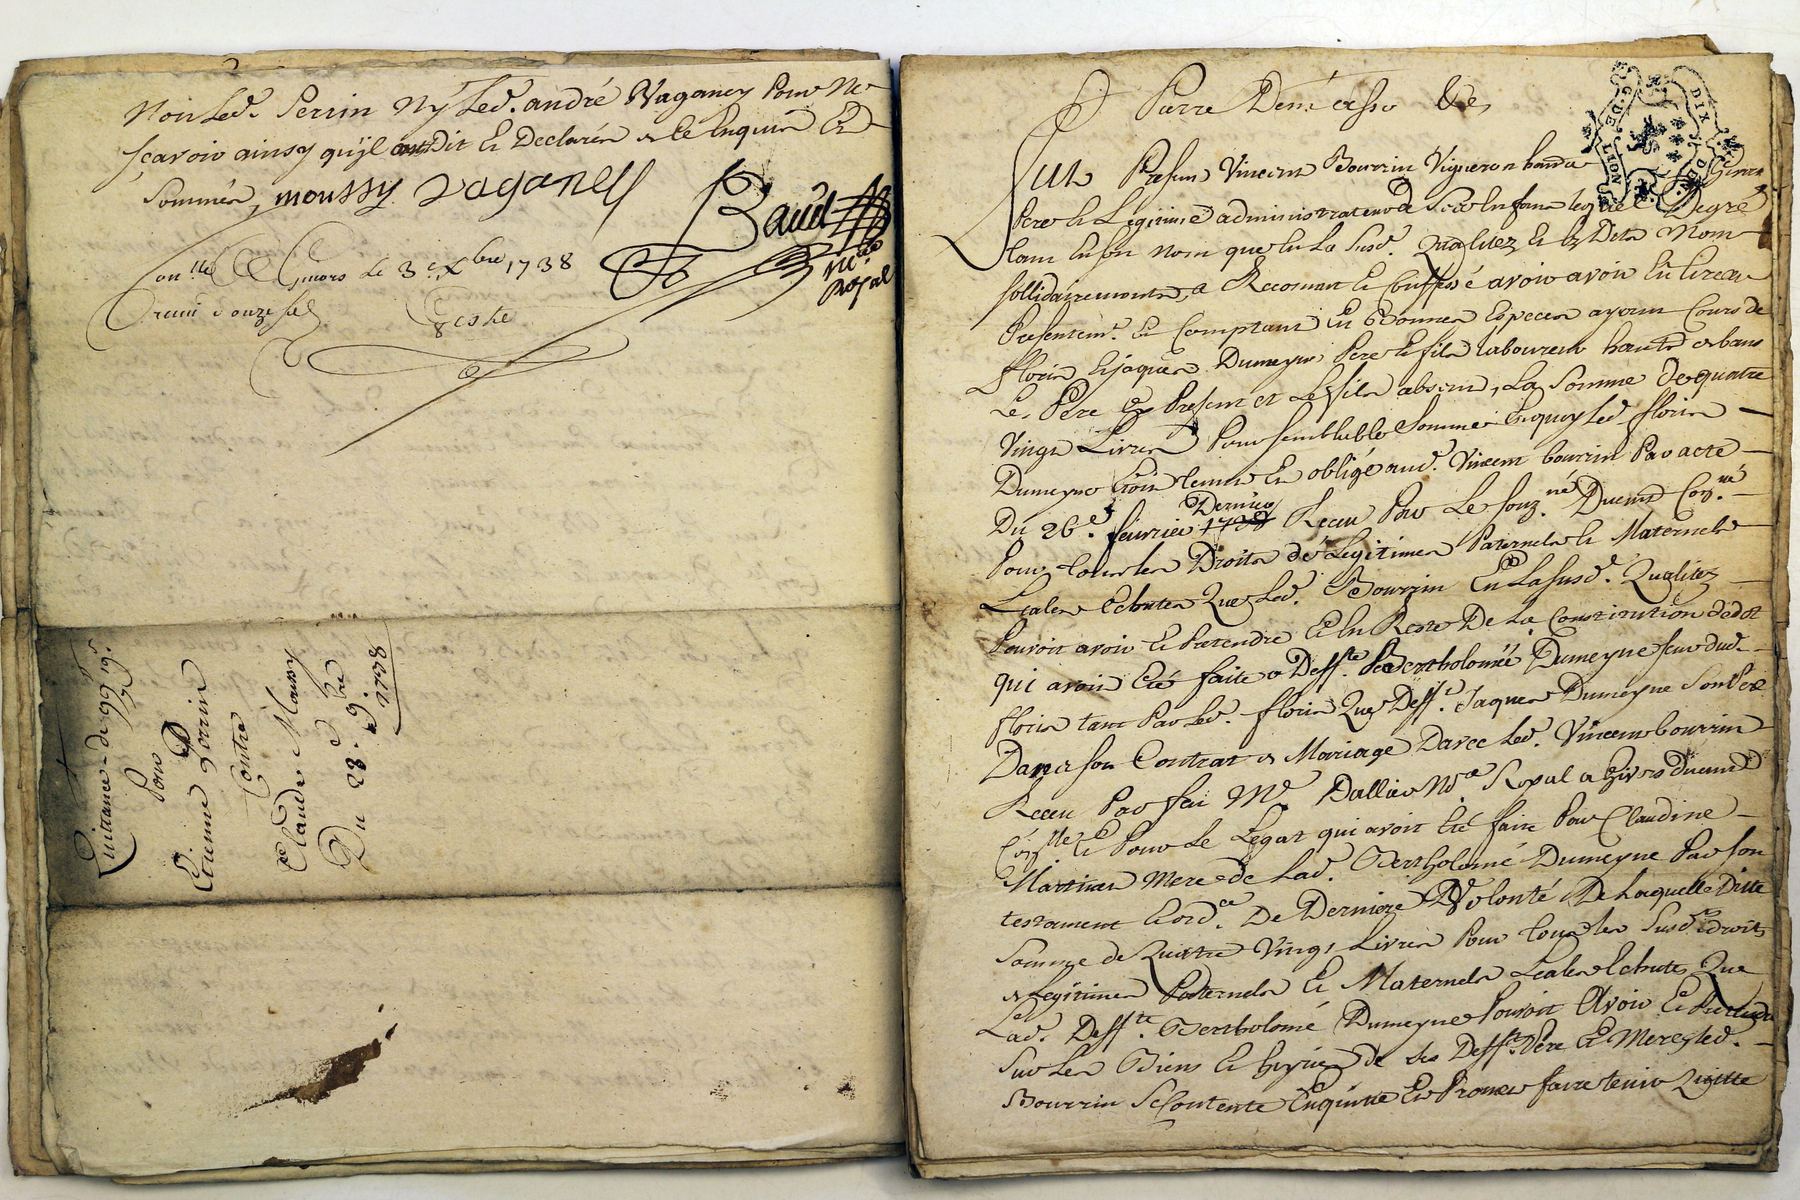 Non Led. Perrin Ny Led. andré Vaganey Pour Ne
scavoir ainsy qu'jl ont Dit et Declarés de ce Enquis Et
Sommés, moussy vaganey
Baud
Nre
Royal
Conllé A Givors le 3e. Xbre 1738
Receu douze sols
Quittance de 99
Pour
Etienne Perrin
Contre
Claude Moussy
Du 28e. 9bre
1738
Pierre
G. DE LION
DIX DEN.
NOT
Fut Present Vincent Bourrin Vigneron hand a Givors
Pere et Legitime administrateur de ses Enfans lequel De gré
tant En son nom que En La Susd. Qualitez Et Es Dits Noms
sollidairement, a Reconnut et Conffessé avoir avoir Eu et receu
Presentemt. Et Comptant En Bonnes Especes ayant Cours de
floris Et jaques Dumeyne Pere et fils laboureur
Le Pere Present et Le fils absent, La Somme De quatre
Vingt Livres Pour semblable Somme Enquoy Led. floris
Dumeyne Etoit tenut et obligé aud. Vincent bourrin Par acte
Dernier
Du 26e. fevrier 1738 Receu Par Le souz.né Duemt Con.né
Pour tous les Droits de Legitimes Paternels et Maternels
Leales Echutes Que Led. Bourrin En La Susd. Qualitez
Pouvoit avoir et Pretendre Et En Reste De La Constitution de dot
qui avoit Eté faite a Deff.te Bertholomée Dumeyne seur dud.
floris tant Par Led. floris Que Deff.t Jaques Dumeyne Son Pere
Dans son Contrat de Mariage D'avec Led. Vincent bourrin
Receu Par feu Me. Dallier No.re Royal a Givors Duemt
Con.llé Et Pour Le Legat qui avoit Eté fait Par Claudine
Martines Mere de Lad. Bertholomé Dumeyne Par son
testament Et ord.ce De Derniere Volonté De Laquelle Ditte
Somme de Quatre Vingt Livres Pour tous les Susd.ts droits
de Legitimes Paternels Et Maternels Leales Echutes Que
Lad. Deff.te Bertholomé Dumeyne Pouvoit Avoir Et Pretendre
Sur Les Biens Et hoyries de ses Deff.ts Pere Et Mere, Led.
Bourrin Se Contente Enquitte Et Promet faire tenir Quitte